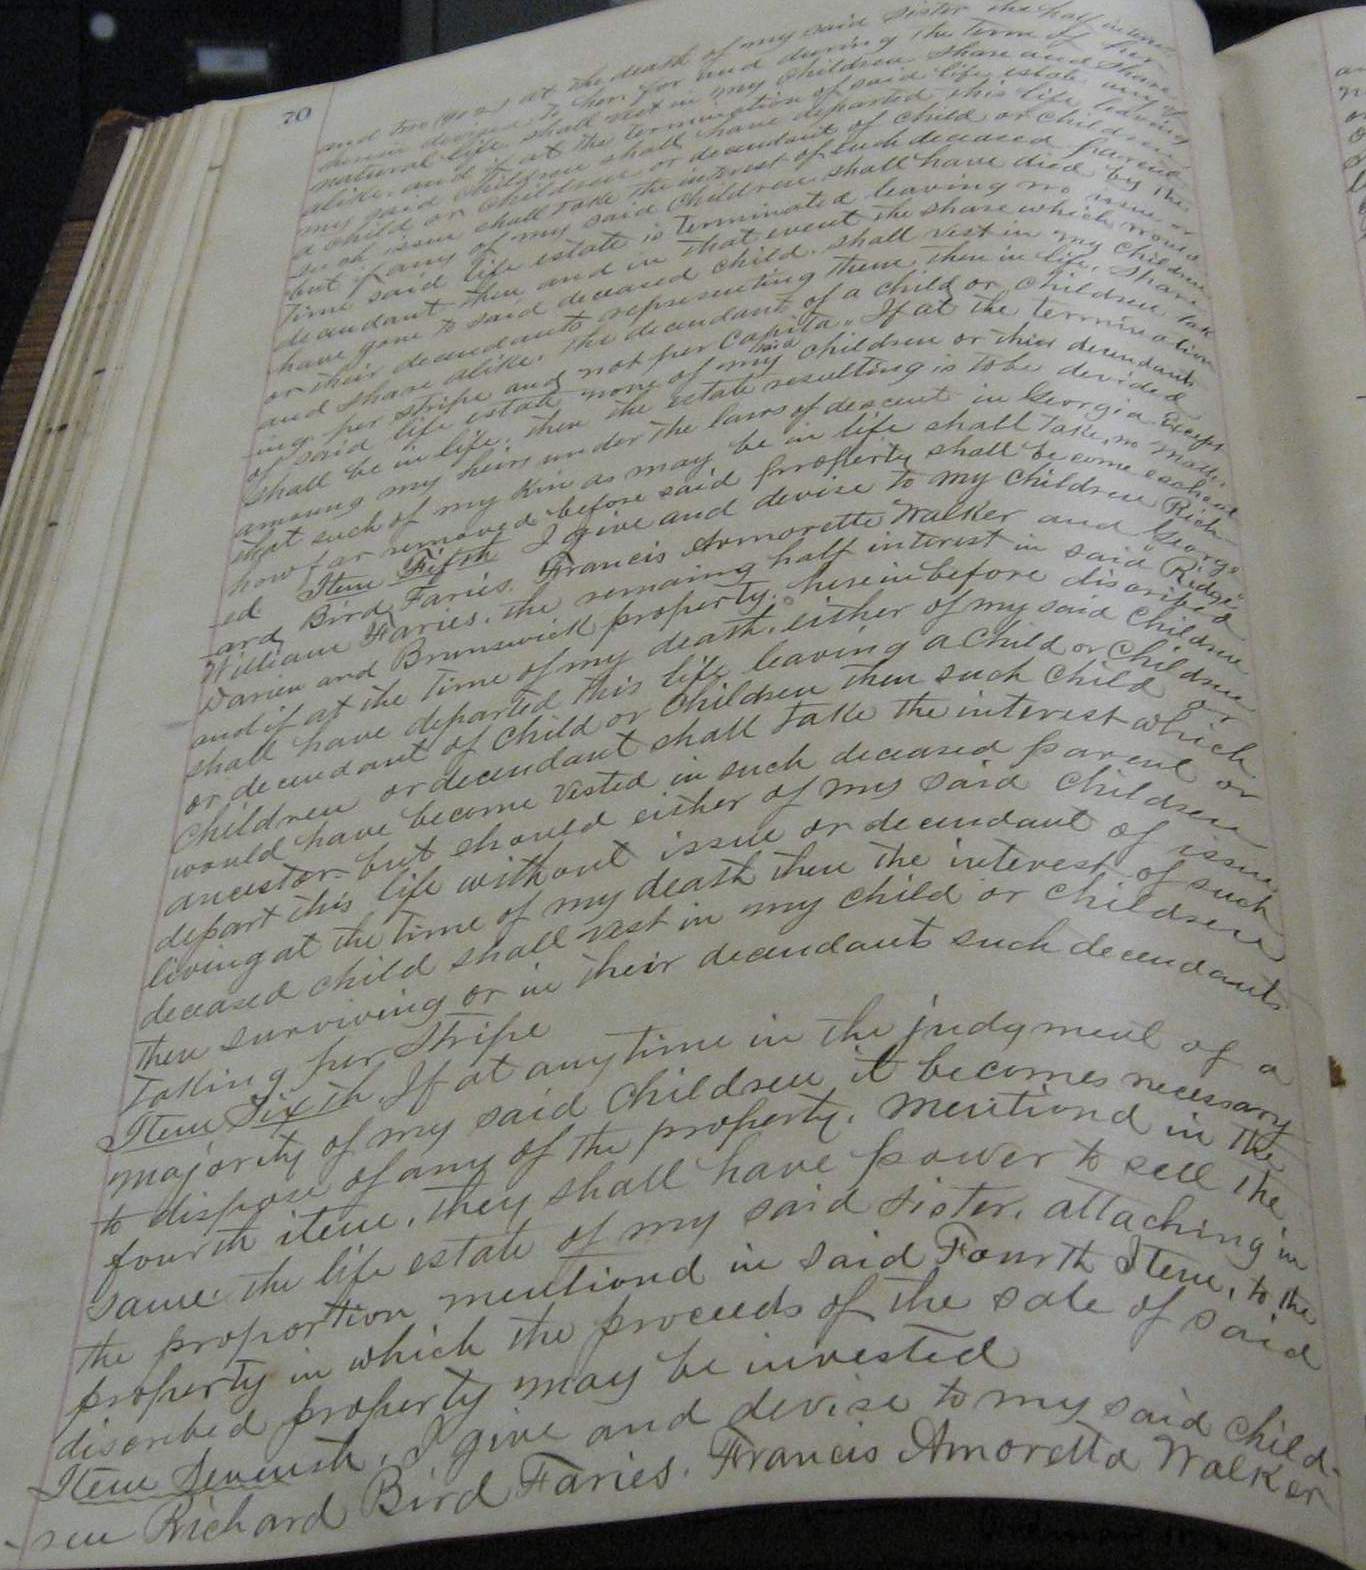 70
and two (402) at the death of my said sister the half interest
herein devised to her for and during the term of her
natural life shall vest in my children share and share
alike. and if at the termination of said life estate any of
my said children shall have departed this life leaving
a child or children or decendant of child or children
such issue shall take the interest of such deceased parent
but if any of my said children shall have died by the
time said life estate is terminated leaving no issue or
decendant then and in that event the share which would
have gone to said deceased child. shall vest in my children
or their decendants representing them then in life, share
and share alike. the decendant of a child or children tak
ing per stripe and not per capita. If at the termination
of said life estate none of my said children or their decendants
shall be in life. then the estate resulting is to be devided
among my heirs under the laws of descent in Georgia. Except
that such of my kin as may be in life shall take, no matter
how far removed before said property shall become escheat
ed Item Fifth I give and devise to my children Rich-
ard Bird Faries. Francis Armorette Walker and George
William Faries. the remaing half interest in said "Ridge"
Darien and Brunswick property. hereinbefore discribed
and if at the time of my death. either of my said children
shall have departed this life leaving a child or children
or decendant of child or children then such child or
children or decendant shall take the interest which
would have become vested in such deceased parent or
ancestor. but should either of my said children
depart this life without issue or decendant of issue
living at the time of my death then the interest of such
deceased child shall vest in my child or children
then surviving or in their decendants such decendants
taking per stripe
Item Sixth. If at any time in the judgment of a
majority of my said children it becomes necessary
to dispose of any of the property. mentiond in the
fourth item. they shall have power to sell the
same. the life estate of my said sister. attaching in
the proportion mentiond in said Fourth Item, to the
property in which the proceeds of the sale of said
discribed property may be invested
Item Seventh. I give and devise to my said child-
ren Richard Bird Faries. Francis Amoretta Walker